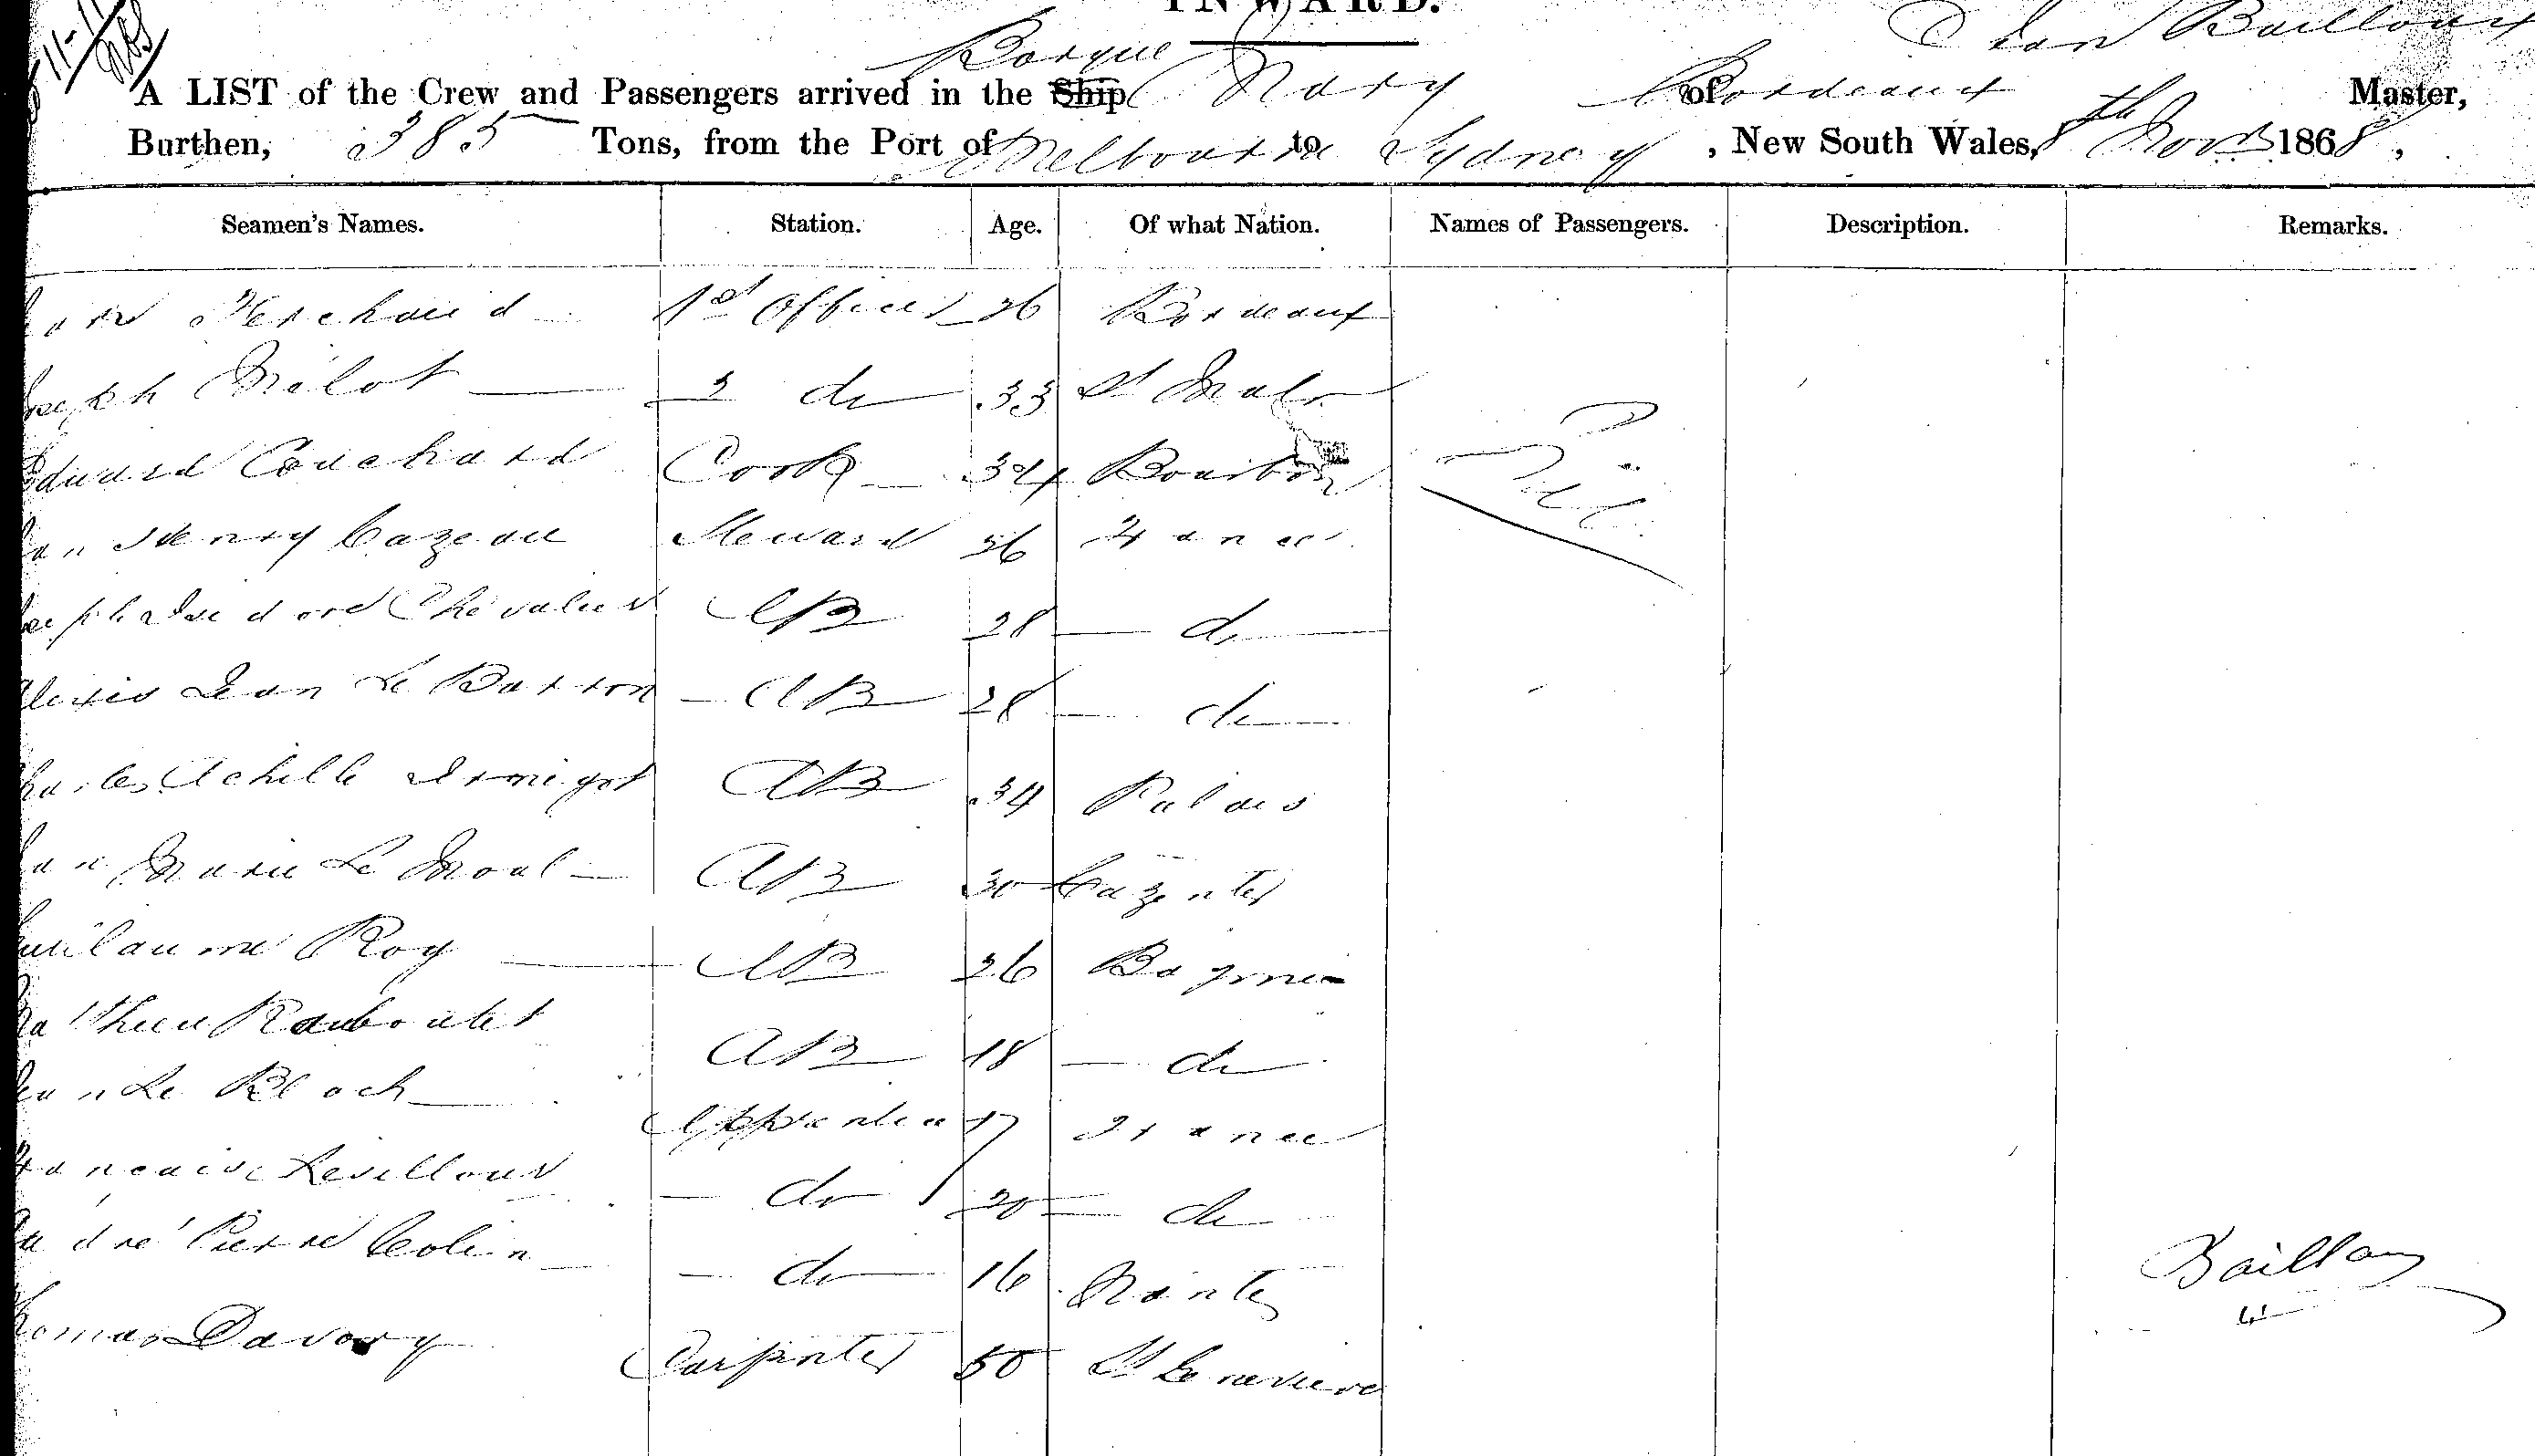 INWARD.
Barque Jean Bailloux
A LIST of the Crew and Passengers arrived in the Ship Mary of Bordeaux Master,
Burthen, 385 Tons, from the Port of Melbourne to Sydney, New South Wales, 8th Novr 1868,
Seamen's Names. Station. Age. Of what Nation. Names of Passengers. Description. Remarks.
1st Officer 26 Bordeaux
Joseph Milot 2 do 33 St Malo
Edward Couchard Cook 34 Bourbon
Jean Henry Cazeau Steward 26 France
Joseph Chevalier AB 28 do
Alexis Jean Le Barron AB 28 do
Charles Achille AB 34 Palais
Jean Marie Le Moal AB 30
Guillaume Roy AB 26
Mathieu AB 18 do
Jean Le Bloch Apprentice 17 France
do 20 do
André Pierre Colin do 16 Nantes
Thomas Davory Carpenter 50 St
Nil
Bailloux